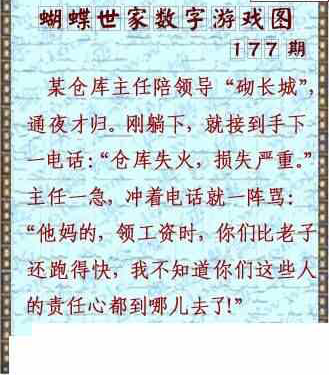 蝴蝶世家数字游戏图
177期
某仓库主任陪领导“砌长城”，
通夜才归。刚躺下，就接到手下
一电话：“仓库失火，损失严重。”
主任一急，冲着电话就一阵骂：
“他妈的，领工资时，你们比老子
还跑得快，我不知道你们这些人
的责任心都到哪儿去了！”